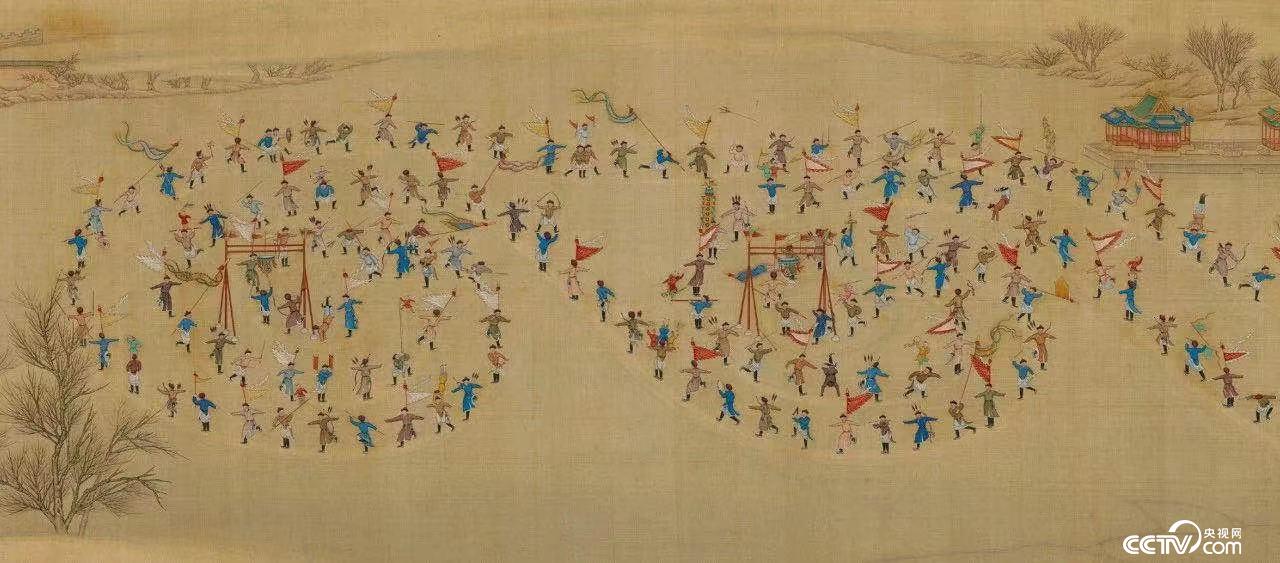 央视网
CCTV.com